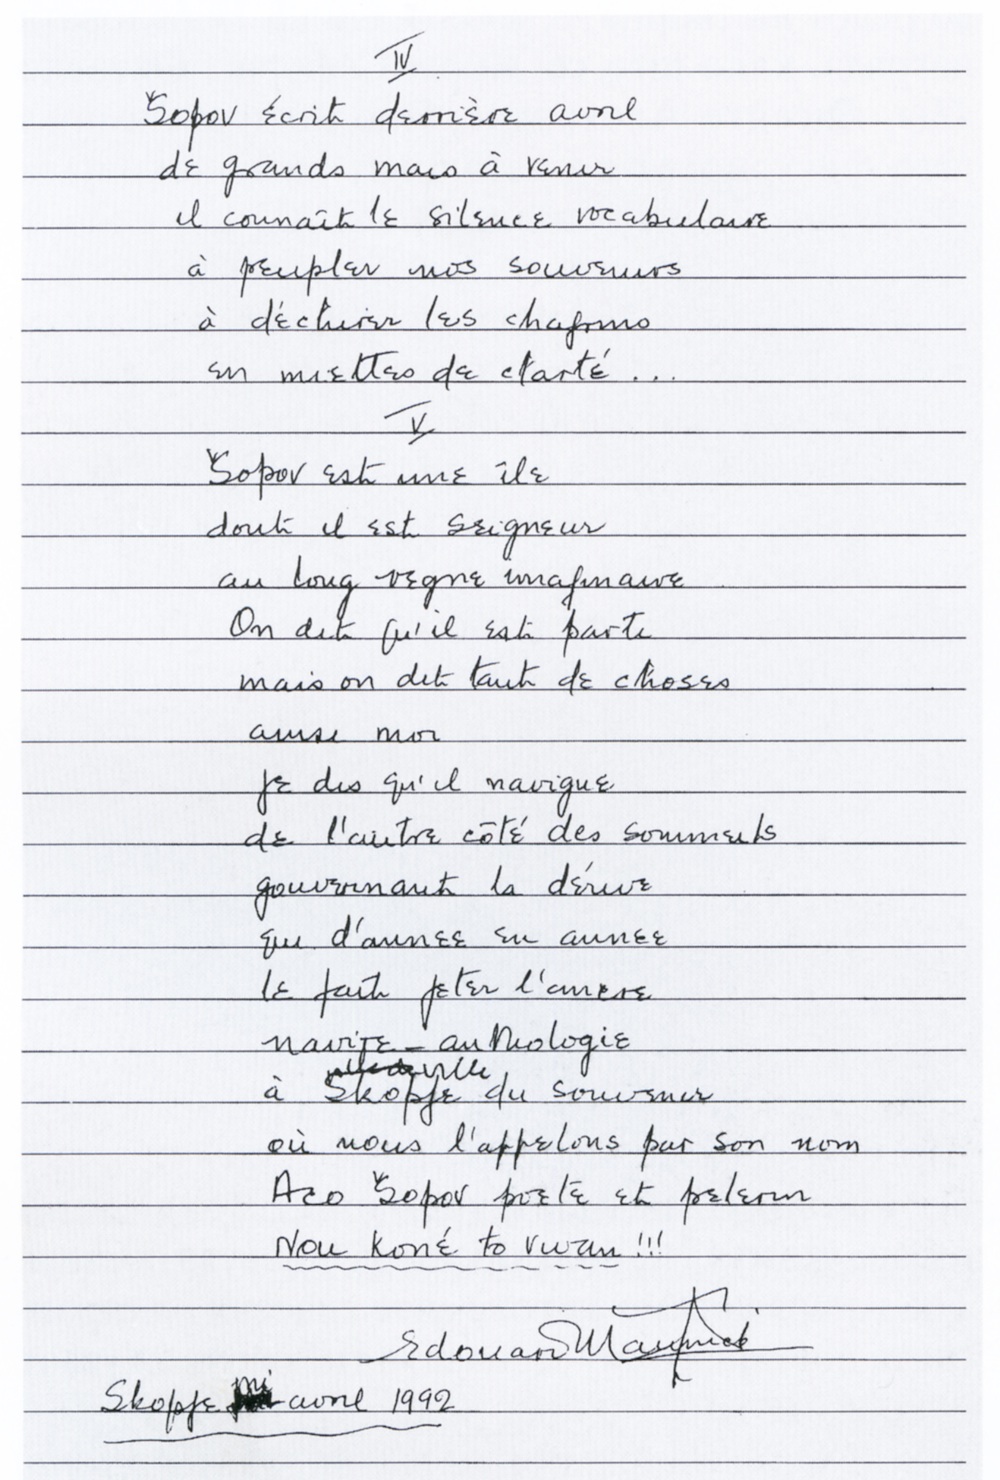 IV
Šopov écrit derrière avril
de grands mais à venir
il connaît le silence vocabulaire
à peupler nos souvenirs
à déchirer les chagrins
en miettes de clarté ...
V
Šopov est une île
dont il est seigneur
au long règne imaginaire
On dit qu'il est parti
mais on dit tant de choses
ainsi moi
je dis qu'il navigue
de l'autre côté des sommets
gouvernant la dérive
qui d'année en année
le fait jeter l'ancre
navire-anthologie
ville
à Skopje du souvenir
où nous l'appelons par son nom
Aco Šopov poète et pèlerin
Nou koné to vivan !!!
Edouard Maunick
Skopje avril 1992